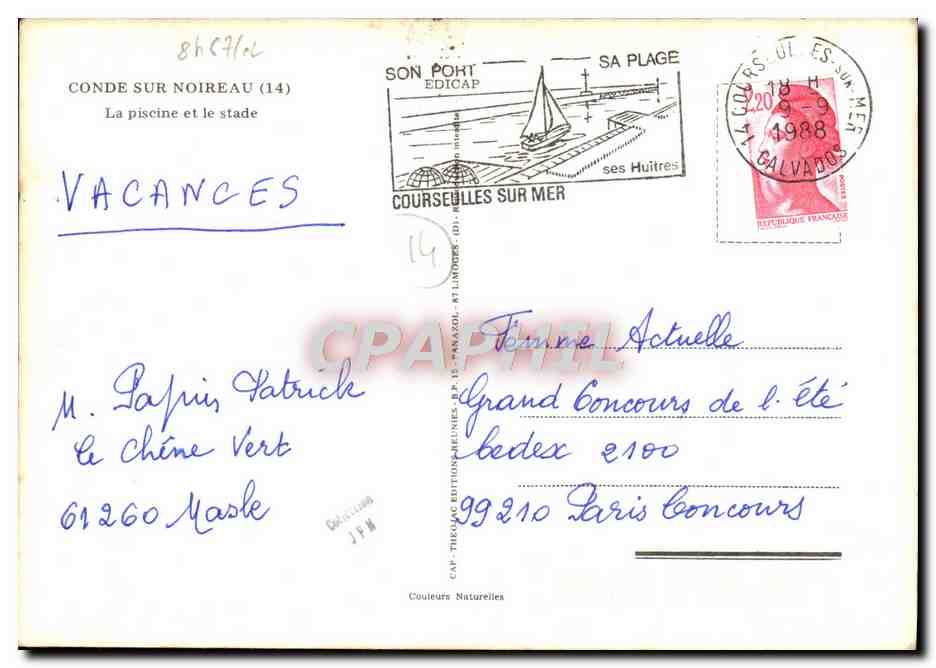 8h67/02
CONDE SUR NOIREAU (14)
La piscine et le stade
SON PORT
EDICAP
SA PLAGE
ses Huîtres
COURSEULLES SUR MER
14 COURSEULLES-SUR-MER
18 H
9-9
1988
CALVADOS
2,20
POSTES
REPUBLIQUE FRANÇAISE
VACANCES
14
CPAPHIL
CAP - THEOJAC EDITIONS REUNIES - B.P. 15 - PANAZOL - 87 LIMOGES - (D) - Reproduction interdite
M. Papin Patrick
Le Chêne Vert
61260 Masle
Collection
JPM
Femme Actuelle
Grand Concours de l'été
Cedex 2100
99210 Paris Concours
Couleurs Naturelles